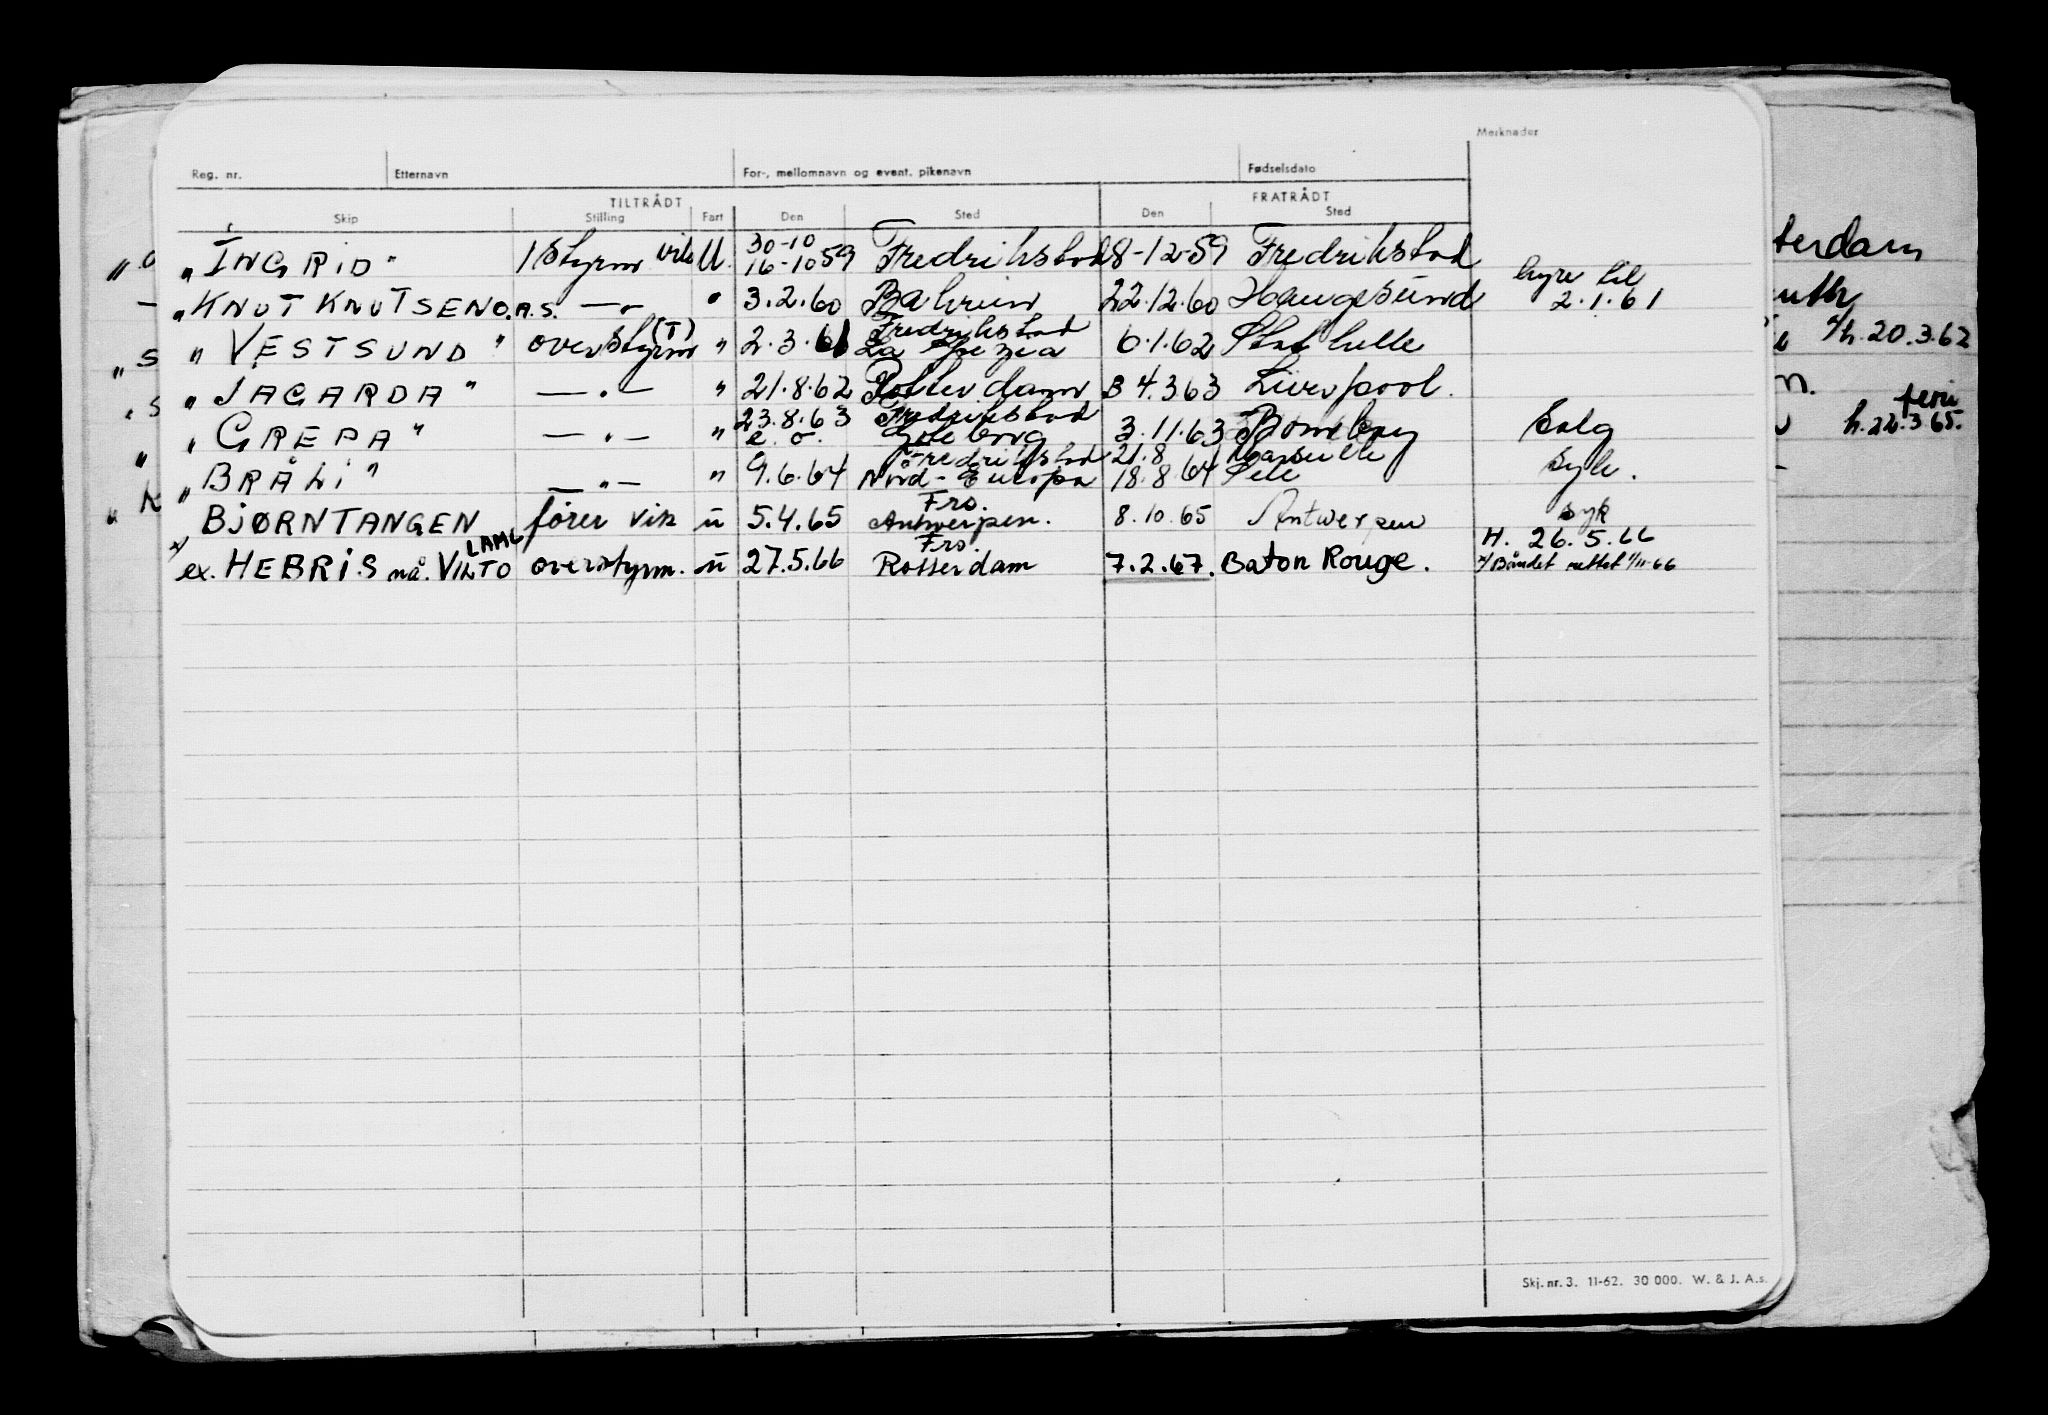 Merknader
Reg. nr. Etternavn For-, mellomnavn og event. pikenavn Fødselsdato
TILTRÅDT FRATRÅDT
Skip Stilling Fart Den Sted Den Sted
30-10
"INGRID" 1 Styrm vik U. 16-10 59 Fredrikstad 18-12-59 Fredrikstad
hyre til
"KNUT KNUTSEN O.A.S. — " — " 3.2.60 Bahrein 22.12.60 Haugesund 2.1.61
(T) Fredrikstad
"VESTSUND" overstyrm " 2.3.61 La Spezia 6.1.62 Stathelle
"JAGARDA" — " — " 21.8.62 Rotterdam 4.3.63 Liverpool.
23.8.63 Fredrikstad
"GREPA" — " — " e. o. Gøteborg 3.11.63 Bombay Salg
Fredrikstad 21.8 Marseille
"BRÅLI" — " — " 9.6.64 Nord-Europa 18.8.64 Sete Syk.
Frs.
BJØRNTANGEN fører vik u 5.4.65 Antwerpen. 8.10.65 Antwerpen syk
LAML Frs. H. 26.5.66
x/ ex. HEBRIS nå. VIKTO overstyrm. u 27.5.66 Rotterdam 7.2.67. Baton Rouge. x/Båndet rettet 1/11-66
terdam
h. 20.3.62
feri
h. 22.3 65.
Skj. nr. 3. 11-62. 30 000. W. & J. A.s.